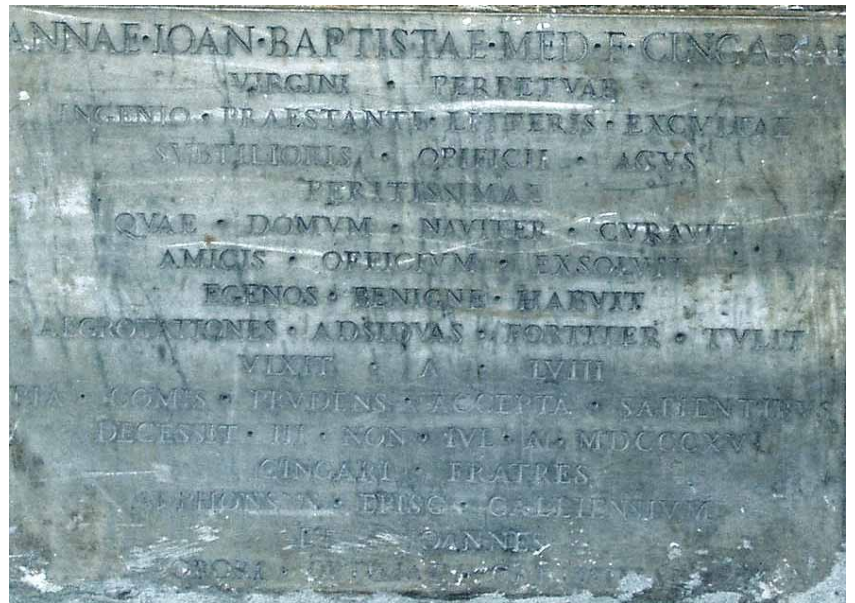 ANNAE·IOAN·BAPTISTAE·MED·F·CINGARAE
VIRGINI · PERPETVAE
INGENIO · PRAESTANTI · LITTERIS · EXCVLTAE
SVBTILIORIS · OPIFICII · ACVS
PERITISSIMAE
QVAE · DOMVM · NAVITER · CVRAVIT
AMICIS · OFFICIVM · EXSOLVIT
EGENOS · BENIGNE · HABVIT
AEGROTATIONES · ADSIDVAS · FORTITER · TVLIT
VIXIT · A · LVIII
PIA · COMIS · PRVDENS · ACCEPTA · SAPIENTIBVS
DECESSIT · III · NON · IVL · A ·
CINGARI · FRATRES
ALPHONSVS · EPISC · CALLIENSIVM
ET · IOANNES